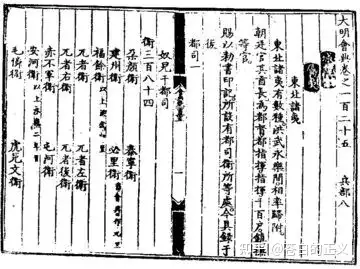 大明會典卷之一百二十五 兵部八
東北諸夷
東北諸夷有數種洪武永樂間相率歸附
朝廷官其酋長為都督都指揮指揮千百戶鎮撫
等官
賜以勅書印記所設有都司衛所等處今具錄于
後
都司一
奴兒干都司
衛三百八十四
朵顏衛 泰寧衛
建州衛 必里衛
福餘衛
兀者衛 兀者左衛
兀者右衛 兀者後衛
赤不罕衛 屯河衛
安河衛
毛憐衛 虎兒文衛
知乎 @苍白的正义